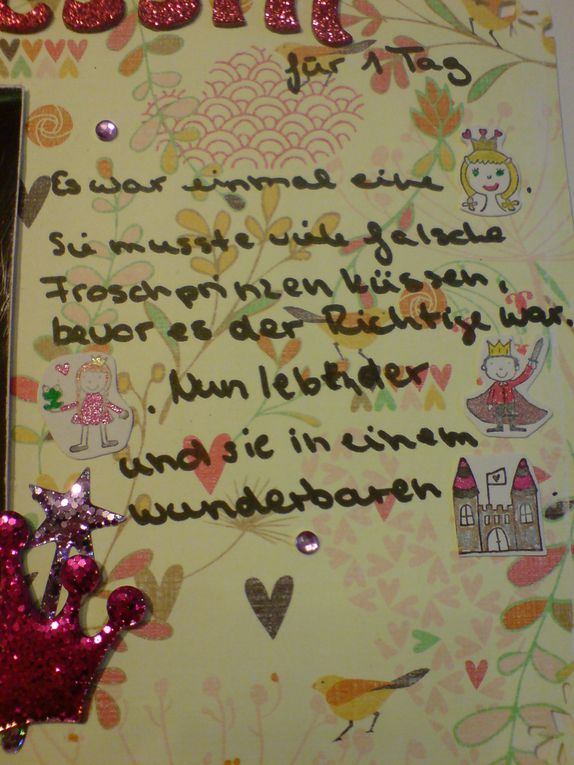 für 1 Tag
Es war einmal eine .
Sie musste viele falsche
Froschprinzen küssen,
bevor es der Richtige war.
. Nun lebt der
und sie in einem
wunderbaren